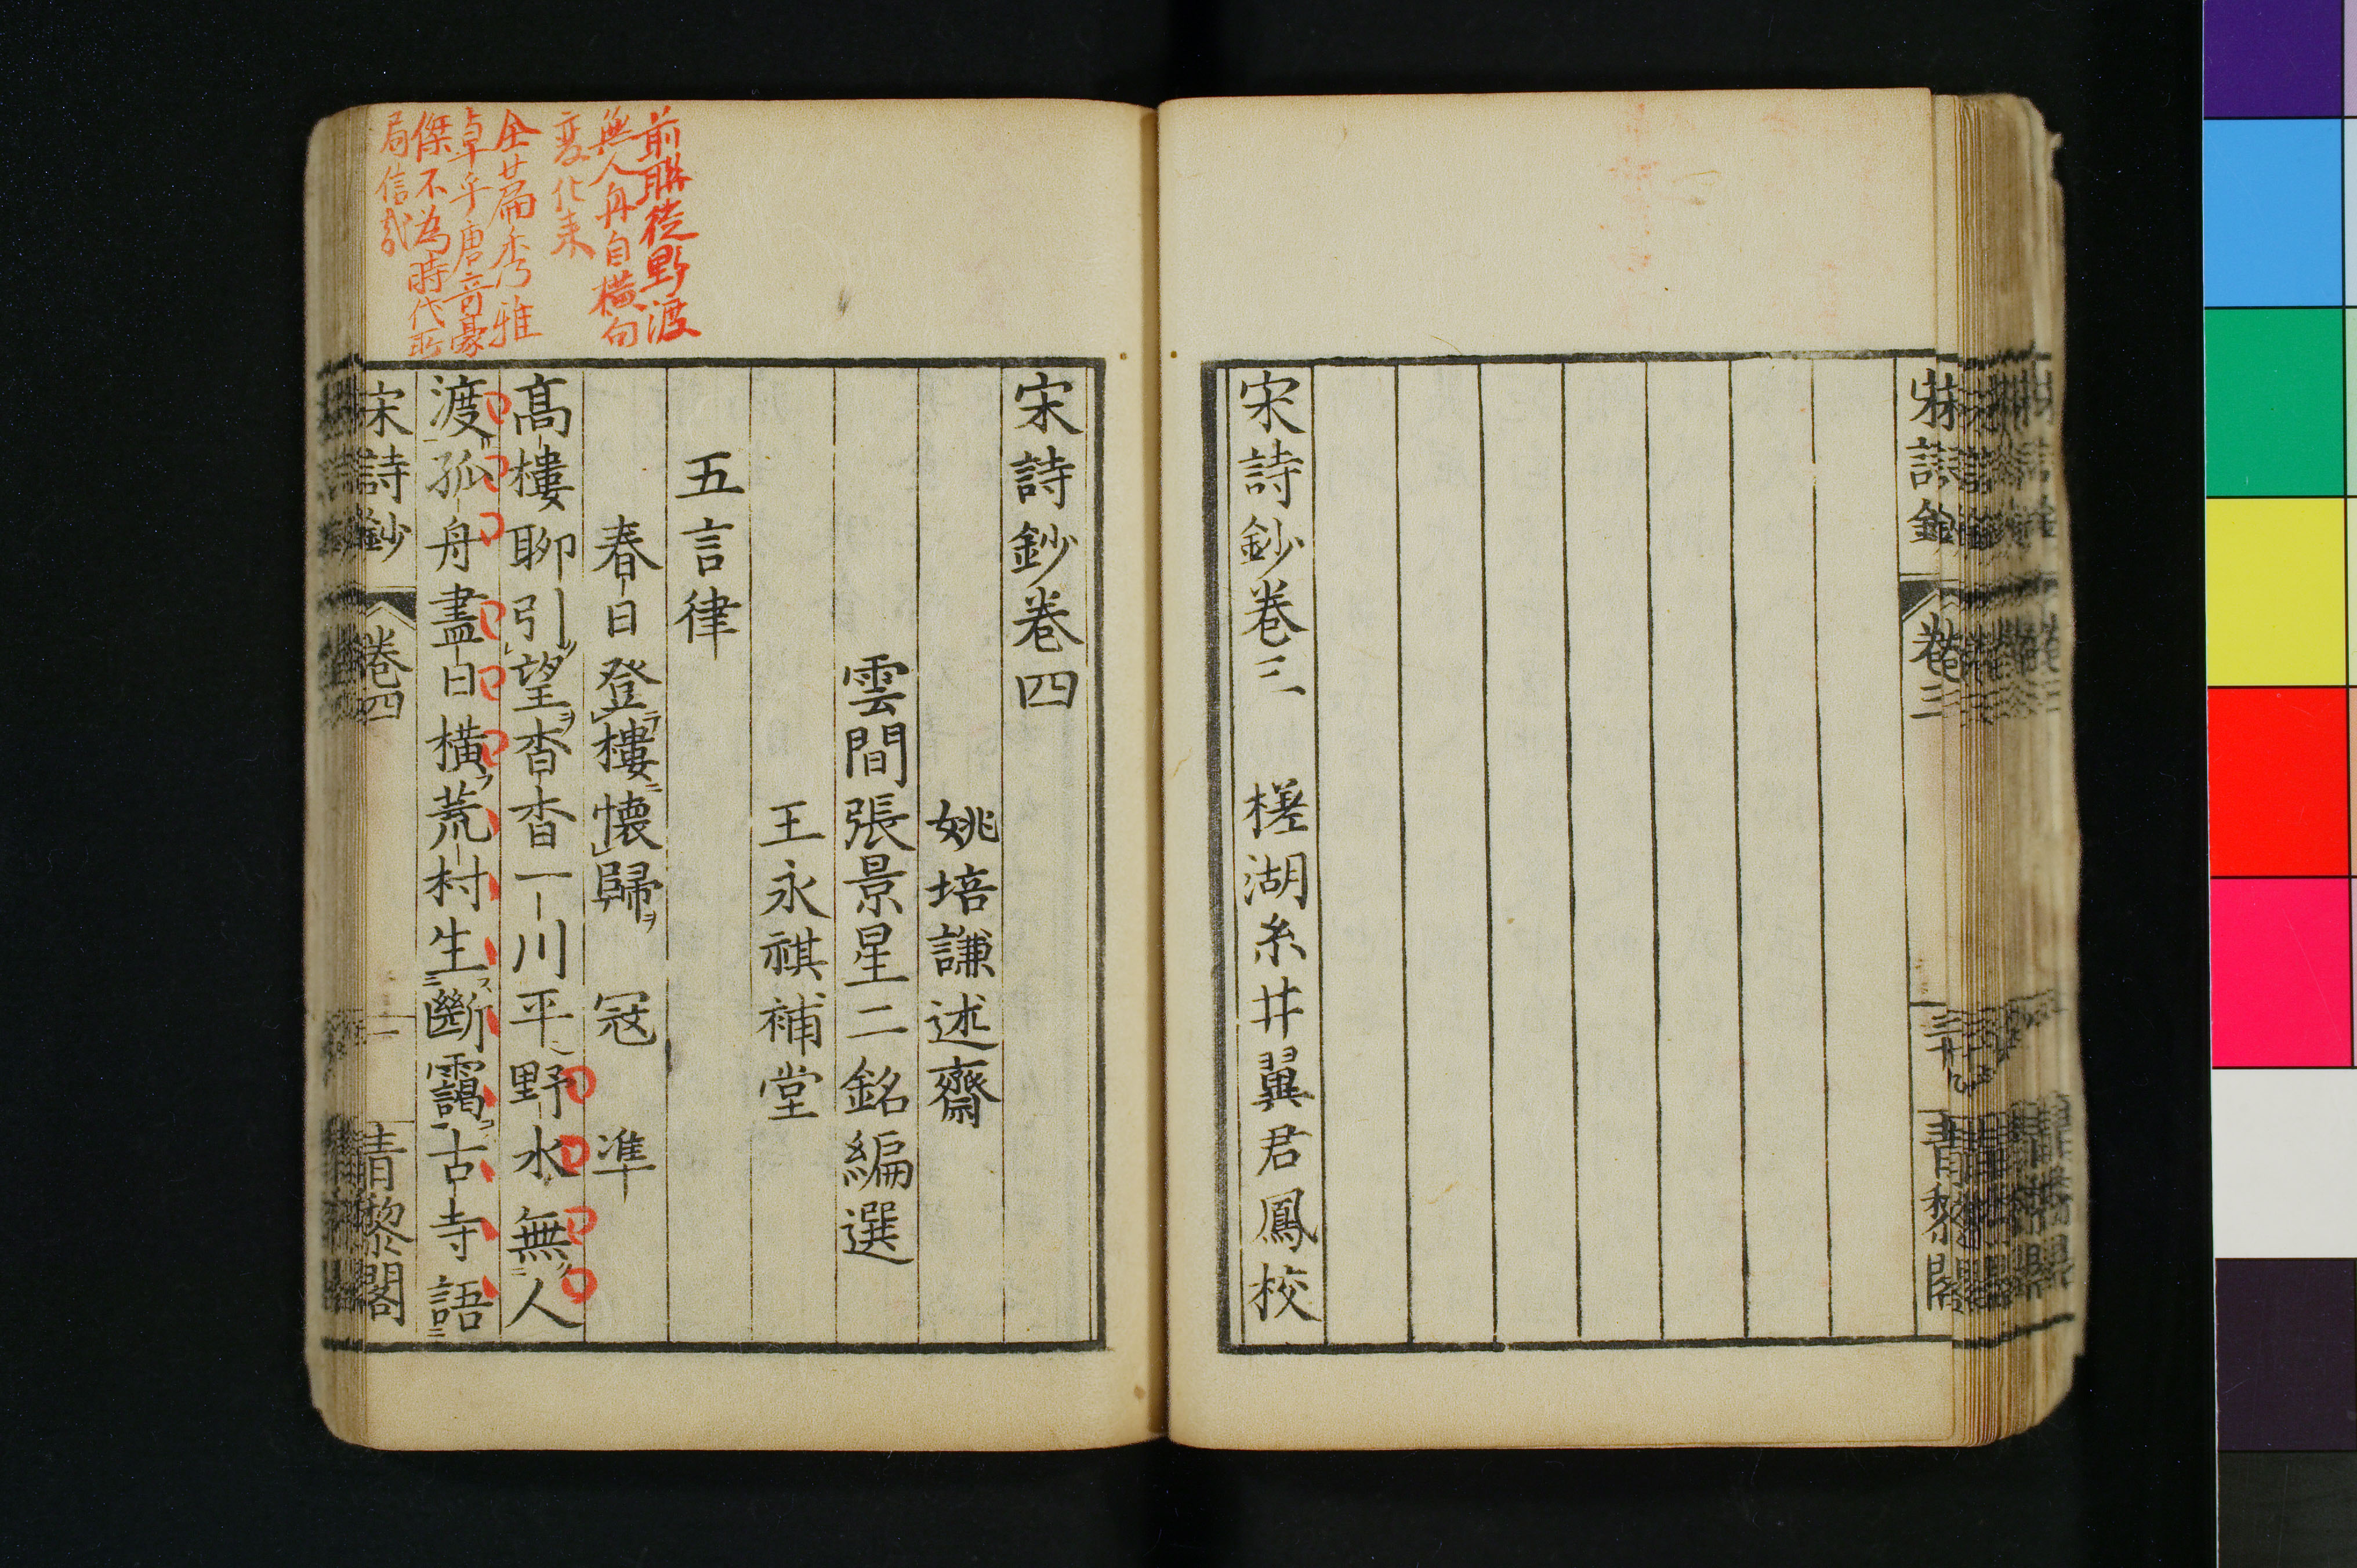 宋詩鈔卷三　槎湖糸井翼君鳳校
宋詩鈔卷四
姚培謙述齋
雲間張景星二銘編選
王永祺補堂
五言律
春日登樓懷歸　冦準
高樓聊引望杳杳一川平野水無人
渡孤舟盡日橫荒村生斷靄古寺語
宋詩鈔　卷四　一　青黎閣
前聯從野渡
無人舟自橫句
変化来
全篇秀雅
卓乎唐音豪
傑不為時代所
局信哉